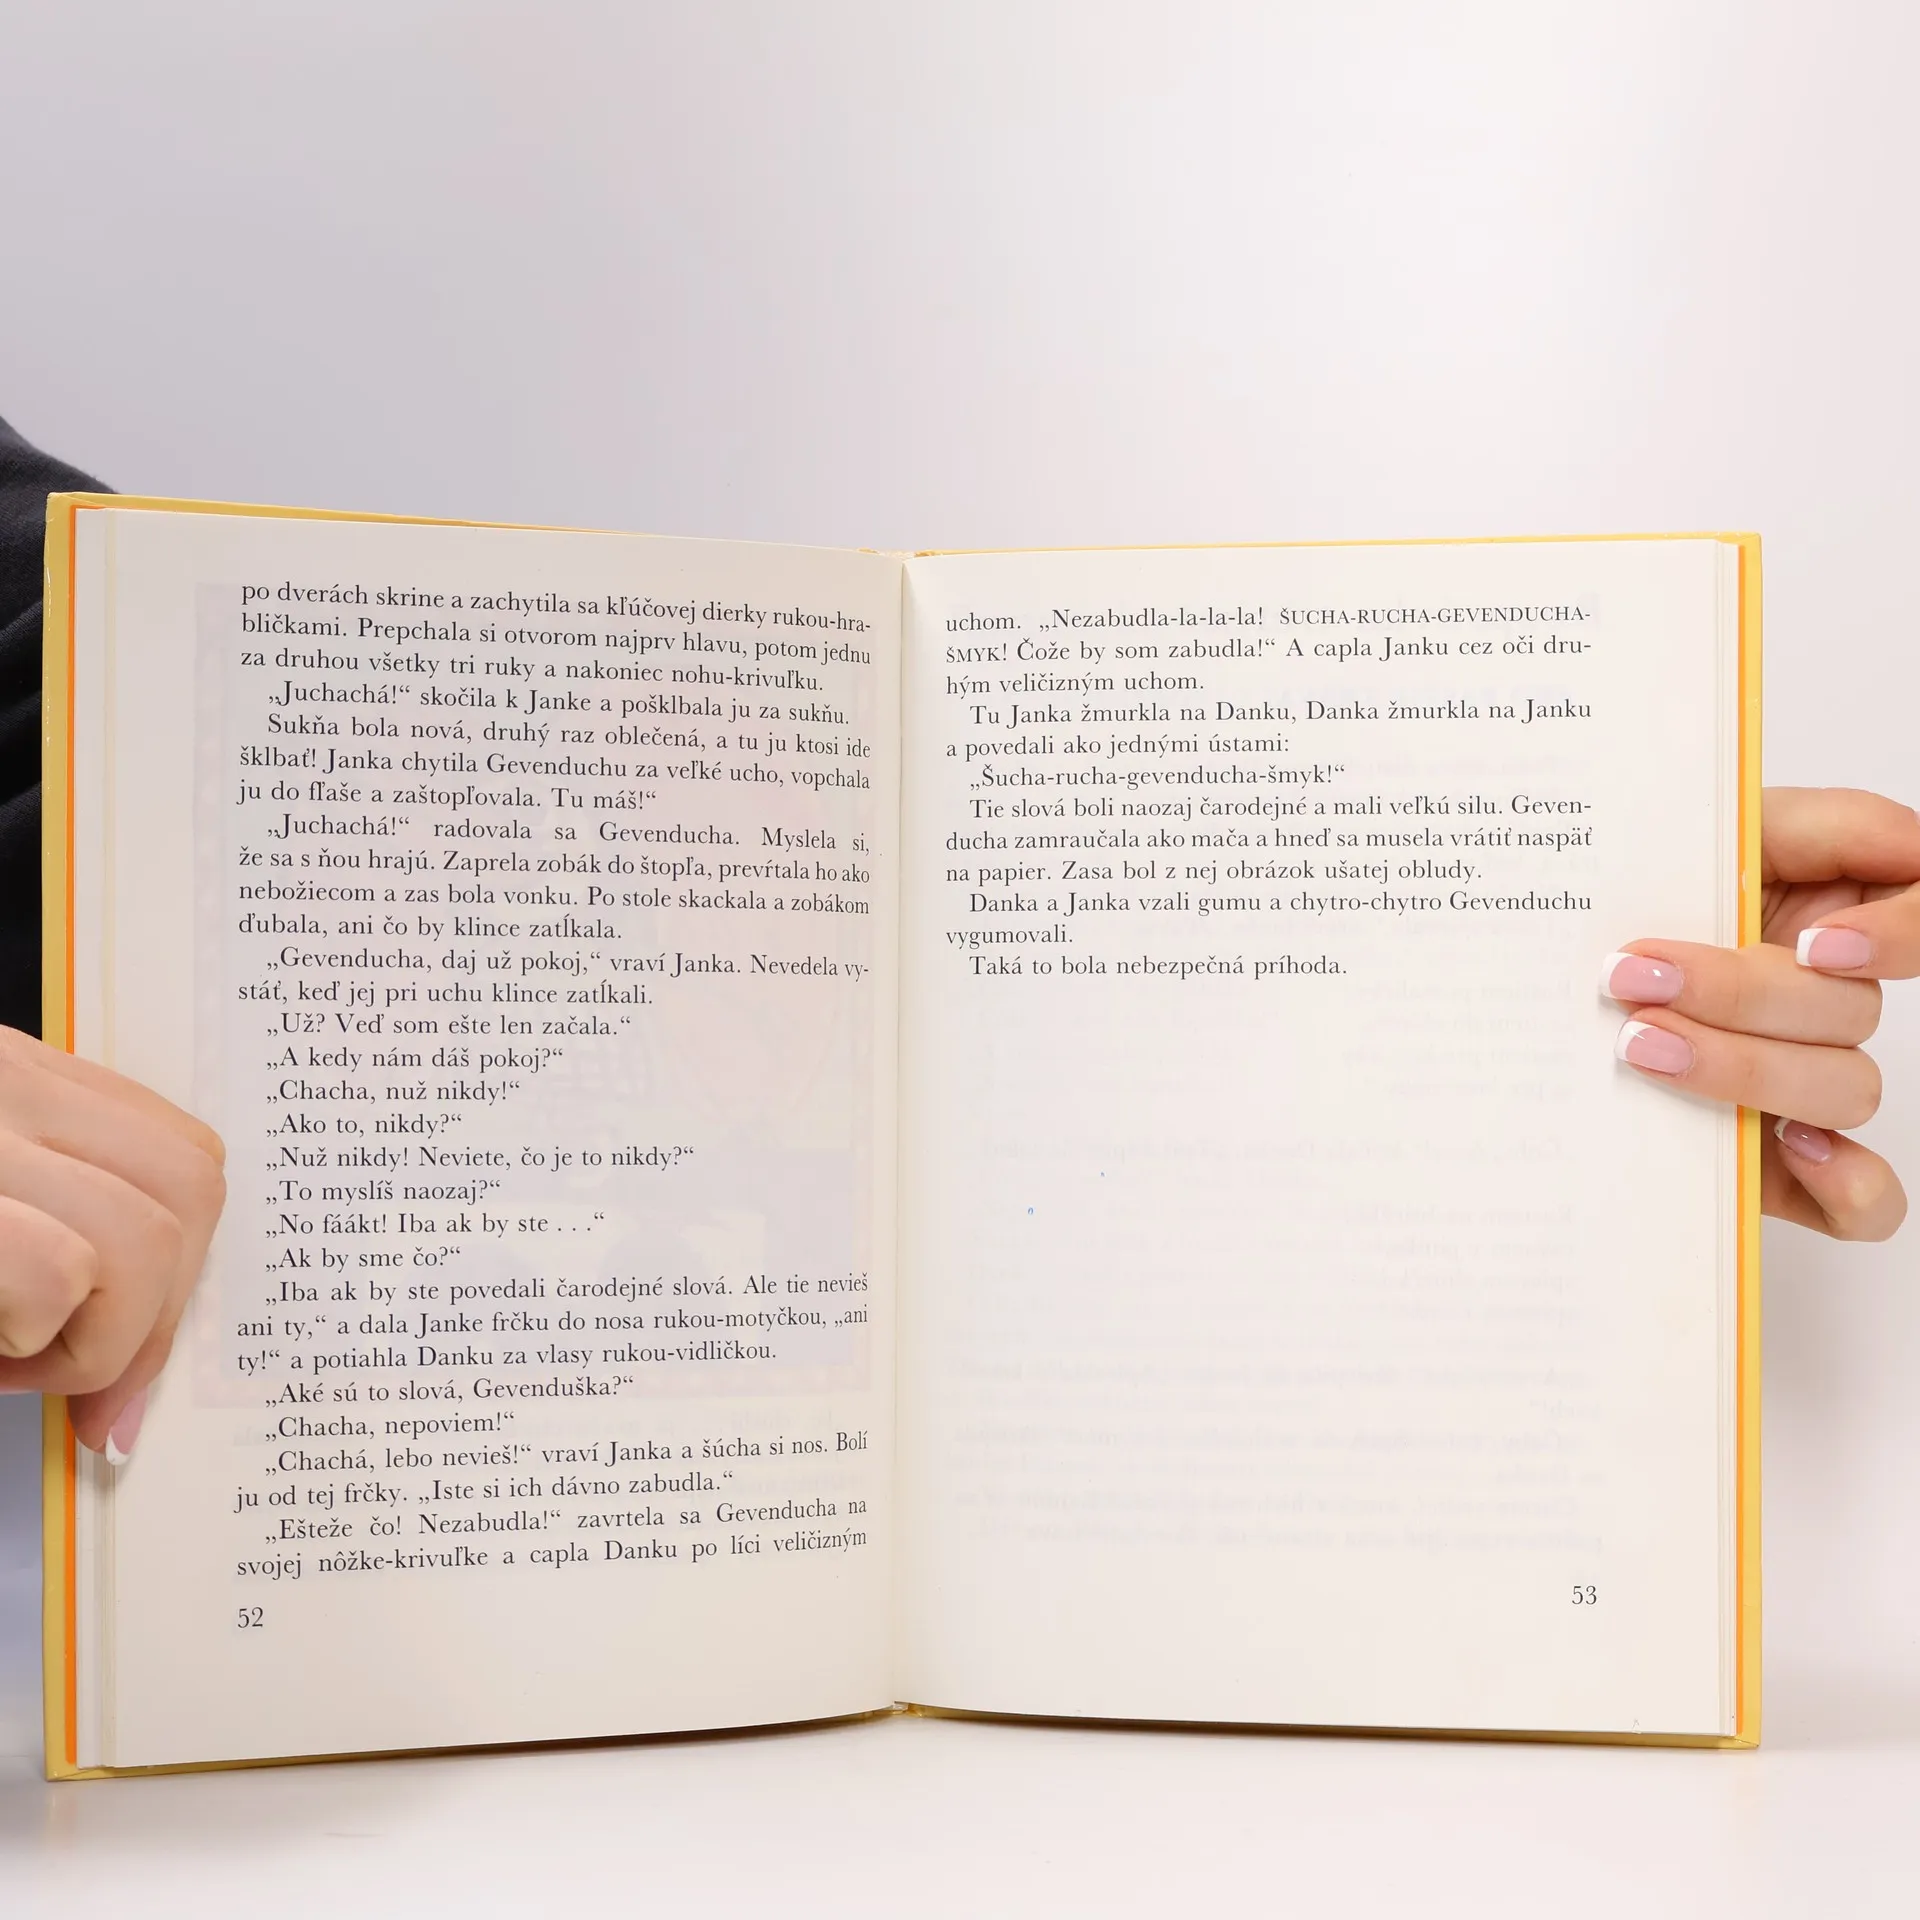 po dverách skrine a zachytila sa kľúčovej dierky rukou-hra-
bličkami. Prepchala si otvorom najprv hlavu, potom jednu
za druhou všetky tri ruky a nakoniec nohu-krivuľku.
„Juchachá!“ skočila k Janke a pošklbala ju za sukňu.
Sukňa bola nová, druhý raz oblečená, a tu ju ktosi ide
šklbať! Janka chytila Gevenduchu za veľké ucho, vopchala
ju do fľaše a zaštopľovala. Tu máš!“
„Juchachá!“ radovala sa Gevenducha. Myslela si,
že sa s ňou hrajú. Zaprela zobák do štopľa, prevŕtala ho ako
nebožiecom a zas bola vonku. Po stole skackala a zobákom
ďubala, ani čo by klince zatĺkala.
„Gevenducha, daj už pokoj,“ vraví Janka. Nevedela vy-
stáť, keď jej pri uchu klince zatĺkali.
„Už? Veď som ešte len začala.“
„A kedy nám dáš pokoj?“
„Chacha, nuž nikdy!“
„Ako to, nikdy?“
„Nuž nikdy! Neviete, čo je to nikdy?“
„To myslíš naozaj?“
„No fáákt! Iba ak by ste . . .“
„Ak by sme čo?“
„Iba ak by ste povedali čarodejné slová. Ale tie nevieš
ani ty,“ a dala Janke frčku do nosa rukou-motyčkou, „ani
ty!“ a potiahla Danku za vlasy rukou-vidličkou.
„Aké sú to slová, Gevenduška?“
„Chacha, nepoviem!“
„Chachá, lebo nevieš!“ vraví Janka a šúcha si nos. Bolí
ju od tej frčky. „Iste si ich dávno zabudla.“
„Ešteže čo! Nezabudla!“ zavrtela sa Gevenducha na
svojej nôžke-krivuľke a capla Danku po líci veličizným
52
uchom. „Nezabudla-la-la-la! ŠUCHA-RUCHA-GEVENDUCHA-
ŠMYK! Čože by som zabudla!“ A capla Janku cez oči dru-
hým veličizným uchom.
Tu Janka žmurkla na Danku, Danka žmurkla na Janku
a povedali ako jednými ústami:
„Šucha-rucha-gevenducha-šmyk!“
Tie slová boli naozaj čarodejné a mali veľkú silu. Geven-
ducha zamraučala ako mača a hneď sa musela vrátiť naspäť
na papier. Zasa bol z nej obrázok ušatej obludy.
Danka a Janka vzali gumu a chytro-chytro Gevenduchu
vygumovali.
Taká to bola nebezpečná príhoda.
53